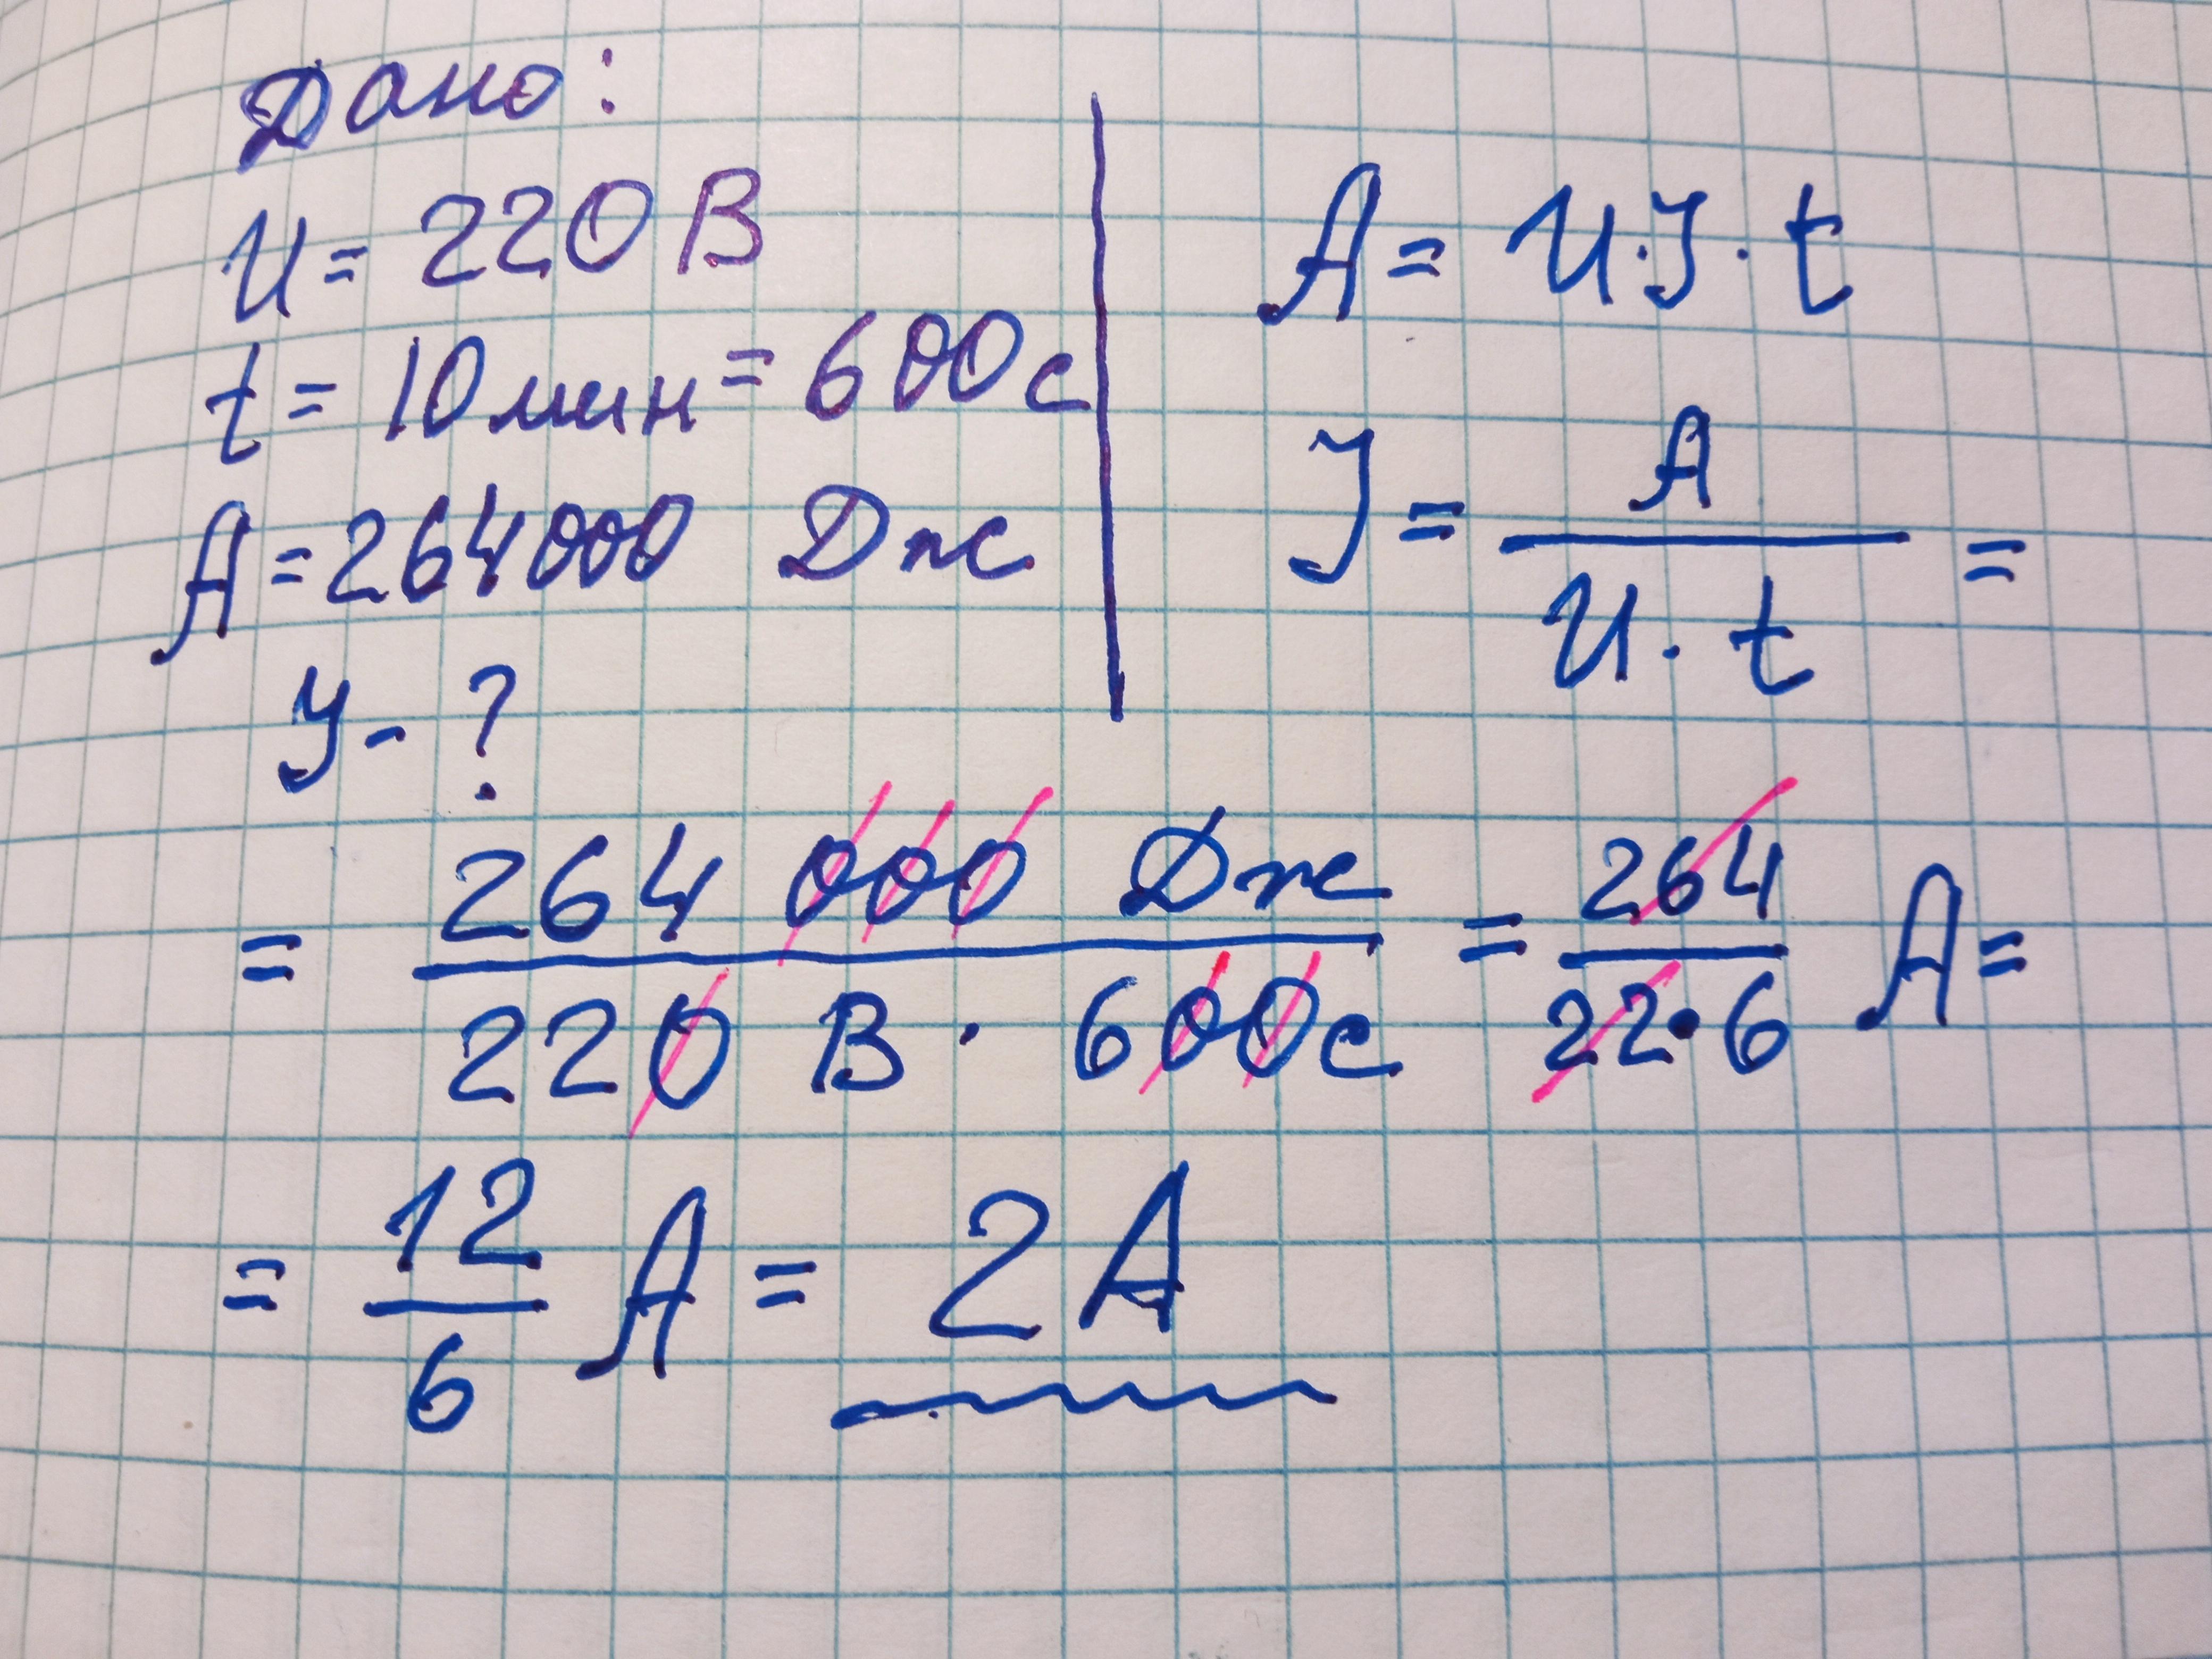 Дано:
U = 220 В
t = 10 мин = 600 с
A = 264000 Дж
J - ?
A = U · J · t
J = A / (U · t) =
= 264 000 Дж / (220 В · 600 с) = 264 / (22 · 6) A =
= 12 / 6 A = 2 A